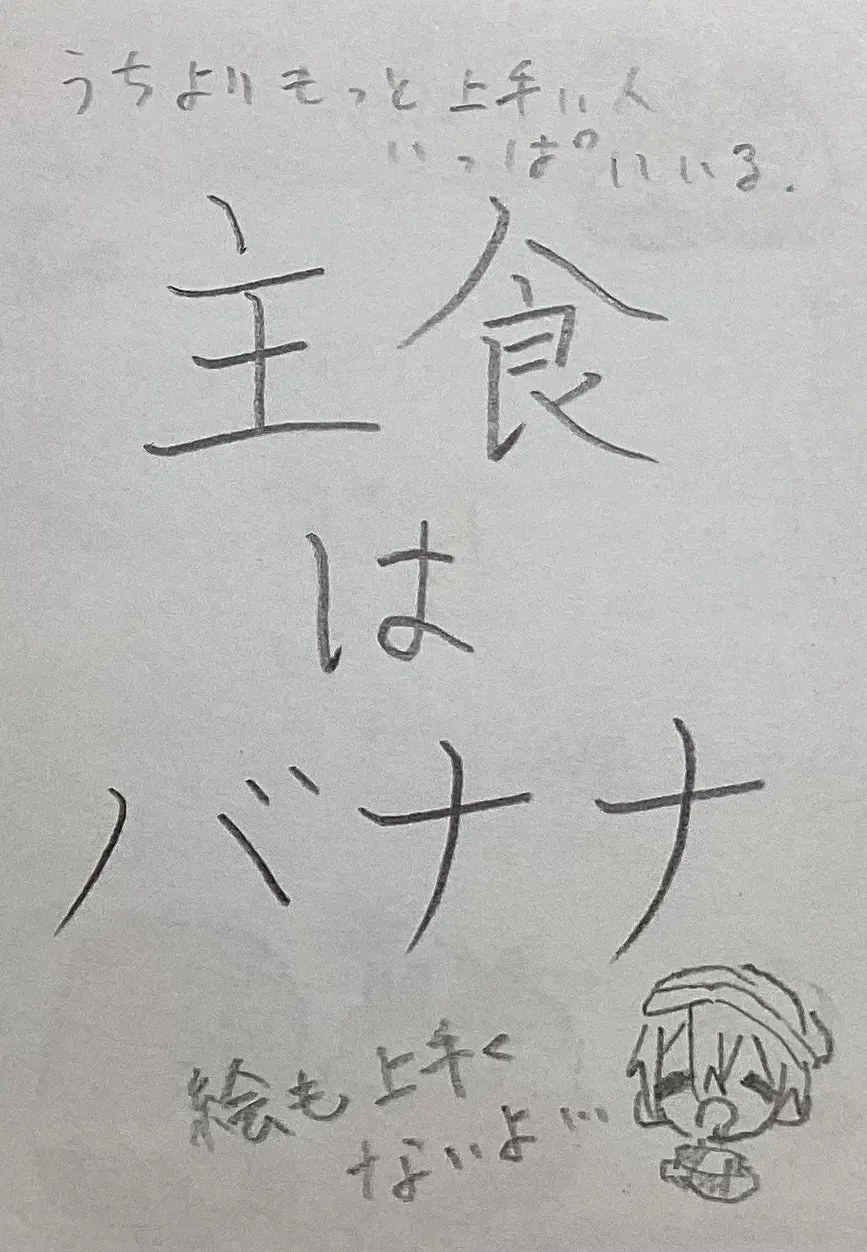 うちよりもっと上手い人
いっぱいいる.
主食
は
バナナ
絵も上手く
ないよ…